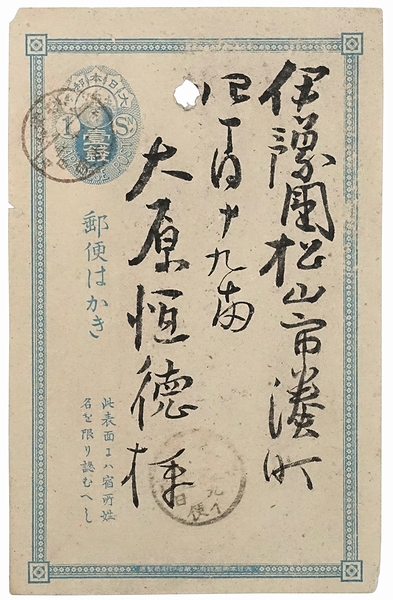 伊豫国松山市湊町
四丁目十九番
大原恒徳様
大日本帝国郵便
1 S.
壹錢
郵便はかき
此表面ニハ宿所姓
名を限り認むへし